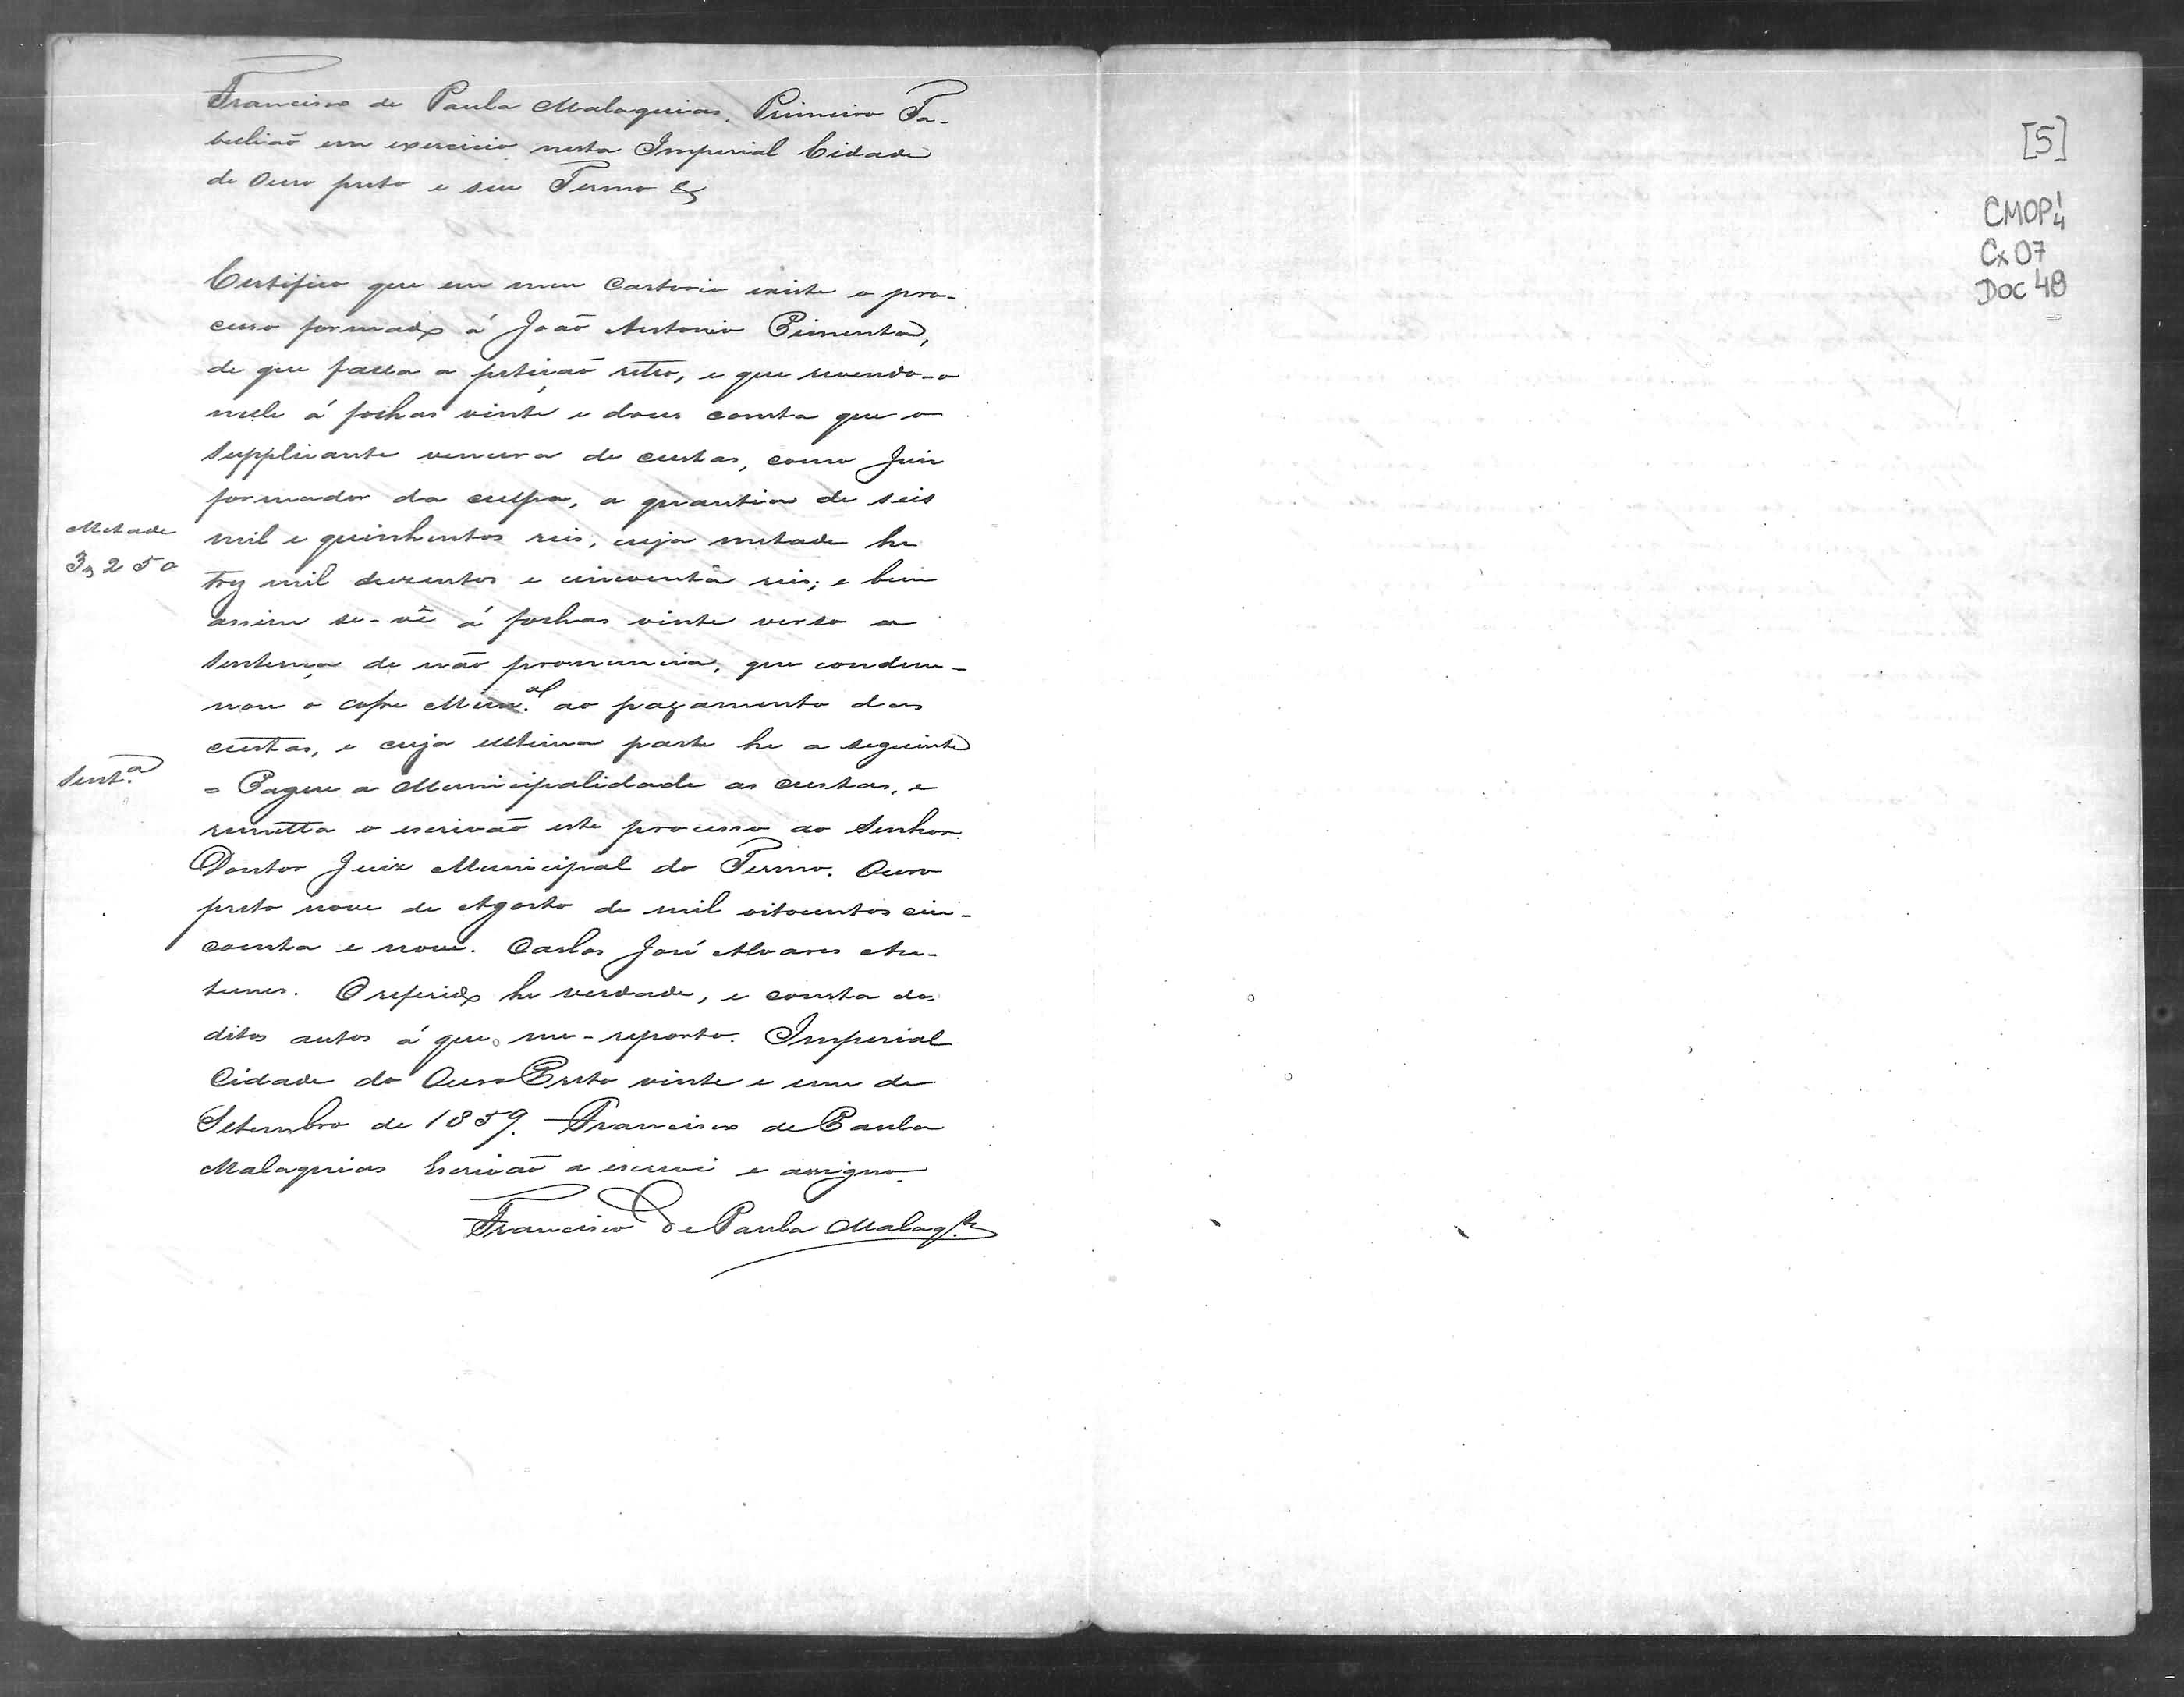 Francisco de Paula Malaquias, Primeiro Ta-
bellião em exercicio nesta Imperial Cidade
de Ouro preto e seu Termo &
Certifico que em meu Cartorio existe o pro-
cesso formado á João Antonio Pimenta,
de que falla a petição retro, e que revendo-o
nelle á folhas vinte e duas consta que o
Supplicante vencera de custas, como Juiz
formador da culpa, a quantia de seis
Metade
3,250
mil e quinhentos reis, cuja metade he
trez mil duzentos e cincoenta reis; e bem
assim se-vê á folhas vinte verso a
Sentença de não pronuncia, que condem-
nou o cofre Mun.al ao pagamento das
custas, e cuja ultima parte he a seguinte
Sent.a
= Pague a Municipalidade as custas, e
remetta o escrivão este processo ao Senhor
Doutor Juiz Municipal do Termo. Ouro
preto nove de Agosto de mil oitocentos cin-
coenta e nove. Carlos José Alvares An-
tunes. O referido he verdade, e consta dos
ditos autos á que me-reporto. Imperial
Cidade do Ouro Preto vinte e um de
Setembro de 1859. Francisco de Paula
Malaquias Escrivão a escrevi e assigno.
Francisco de Paula Malaq.as
[5]
CMOP 1/4
Cx 07
Doc 49